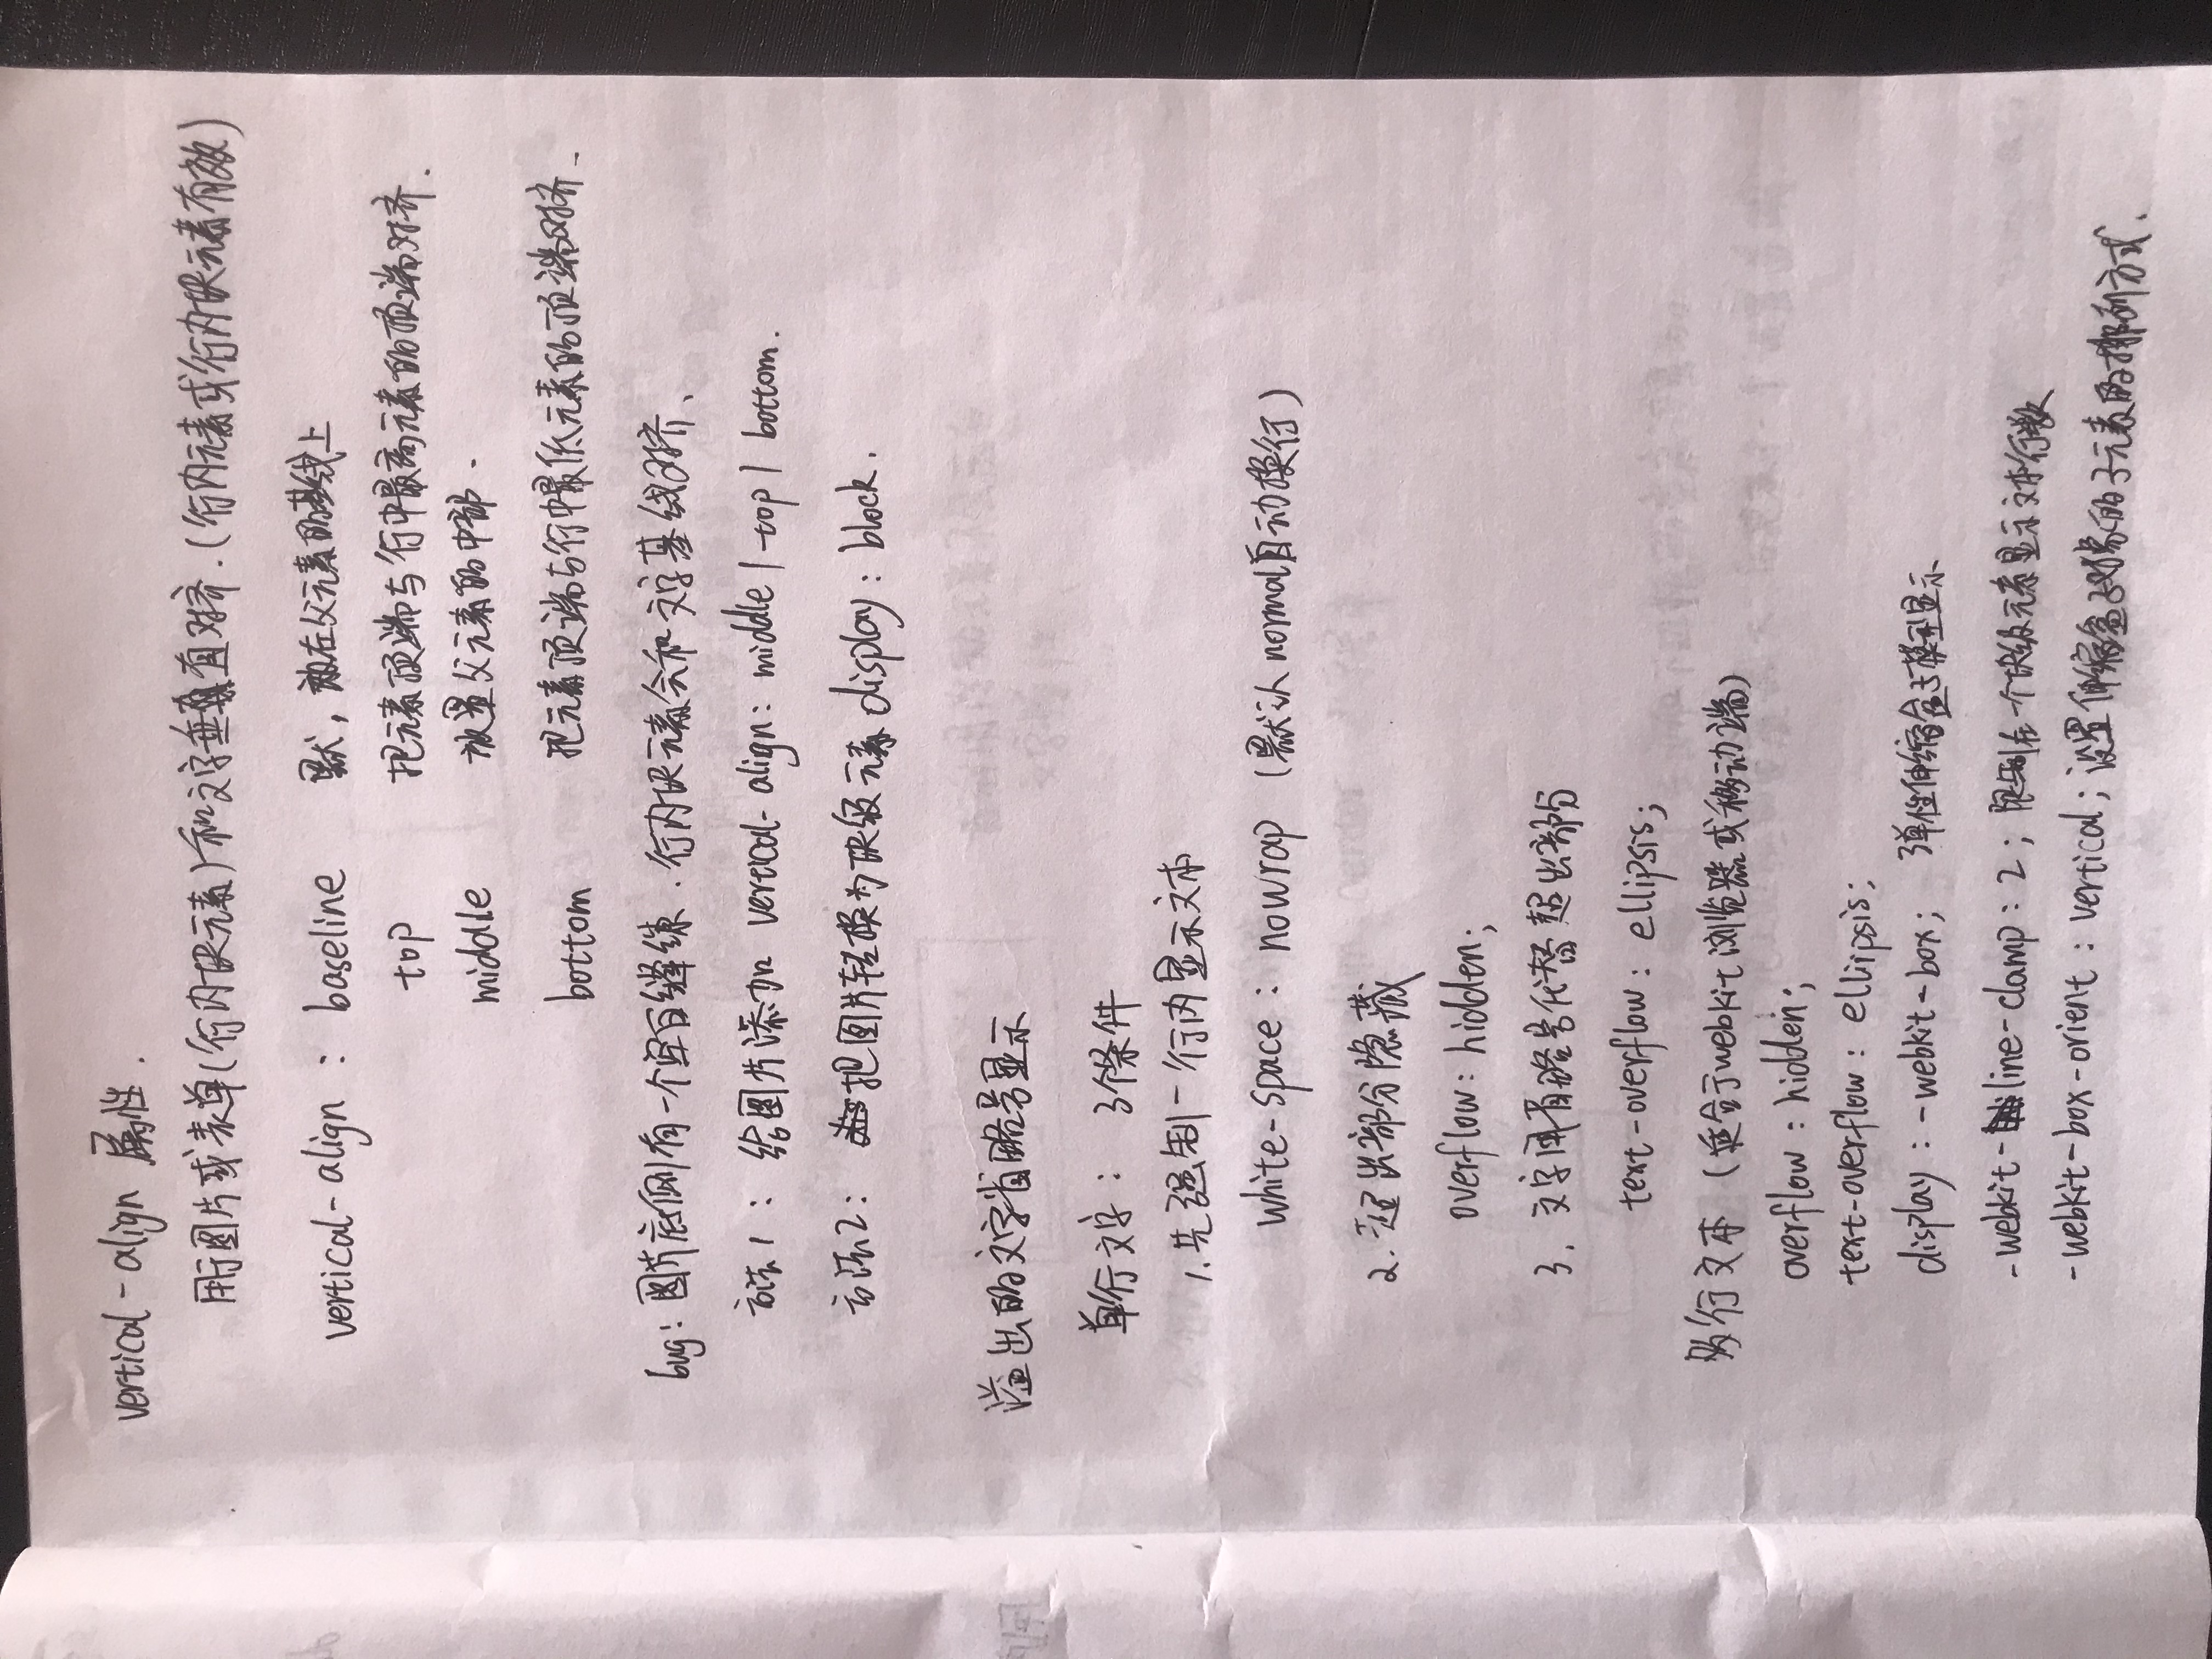 vertical-align 属性.
用于图片或表单(行内块元素)和文字垂直对齐.(行内元素或行内块元素有效)
vertical-align : baseline 默, 放在父元素的基线上
top 把元素顶端与行中最高元素的顶端对齐.
middle 放置父元素的中部.
bottom 把元素顶端与行中最低元素的顶端对齐.
bug: 图片底侧有一个空白缝隙.行内块元素会和文字基线对齐、
方法1: 给图片添加 vertical-align: middle | top | bottom.
方法2: 把图片转换为块级元素 display: block.
溢出的文字省略号显示
单行文字: 3个条件
1.先强制一行内显示文本
white-space : nowrap (默认normal自动换行)
2.超出部分隐藏
overflow: hidden;
3. 文字用省略号代替超出部分
text-overflow: ellipsis;
多行文本 (适合于webkit浏览器或移动端)
overflow : hidden;
text-overflow: ellipsis;
display : -webkit-box; 弹性伸缩盒子模型显示
-webkit-line-clamp: 2; 限制在一个块级元素显示文本行数
-webkit-box-orient : vertical; 设置伸缩盒子对象的子元素的排列方式.